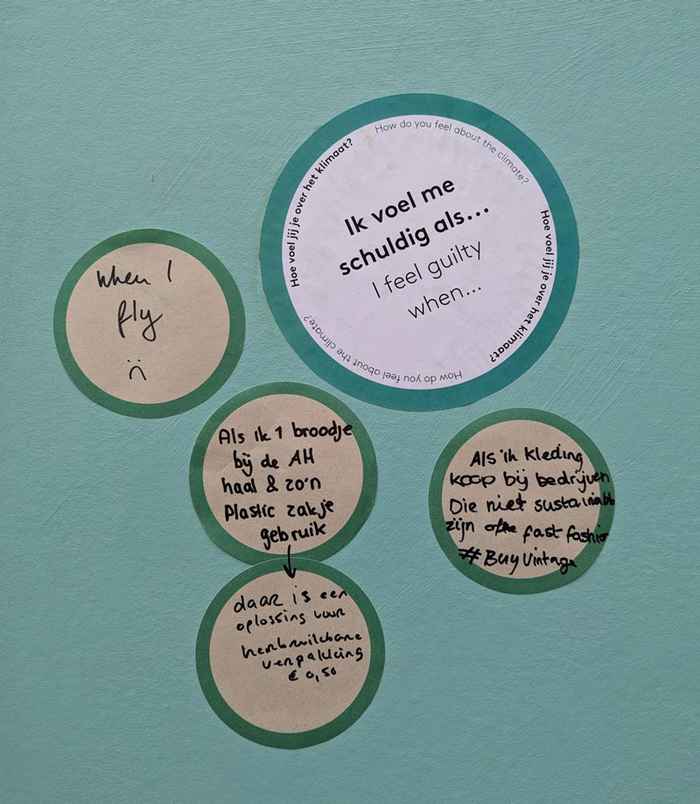 Hoe voel jij je over het klimaat?
How do you feel about the climate?
Hoe voel jij je over het klimaat?
How do you feel about the climate?
Ik voel me
schuldig als...
I feel guilty
when...
When I
fly
:(
Als ik 1 broodje
bij de AH
haal & zo'n
Plastic zakje
gebruik
daar is een
oplossing voor
herbruikbare
verpakking
€ 0,50
Als ik kleding
koop bij bedrijven
Die niet sustainable
zijn fast fashion
#BuyVintage